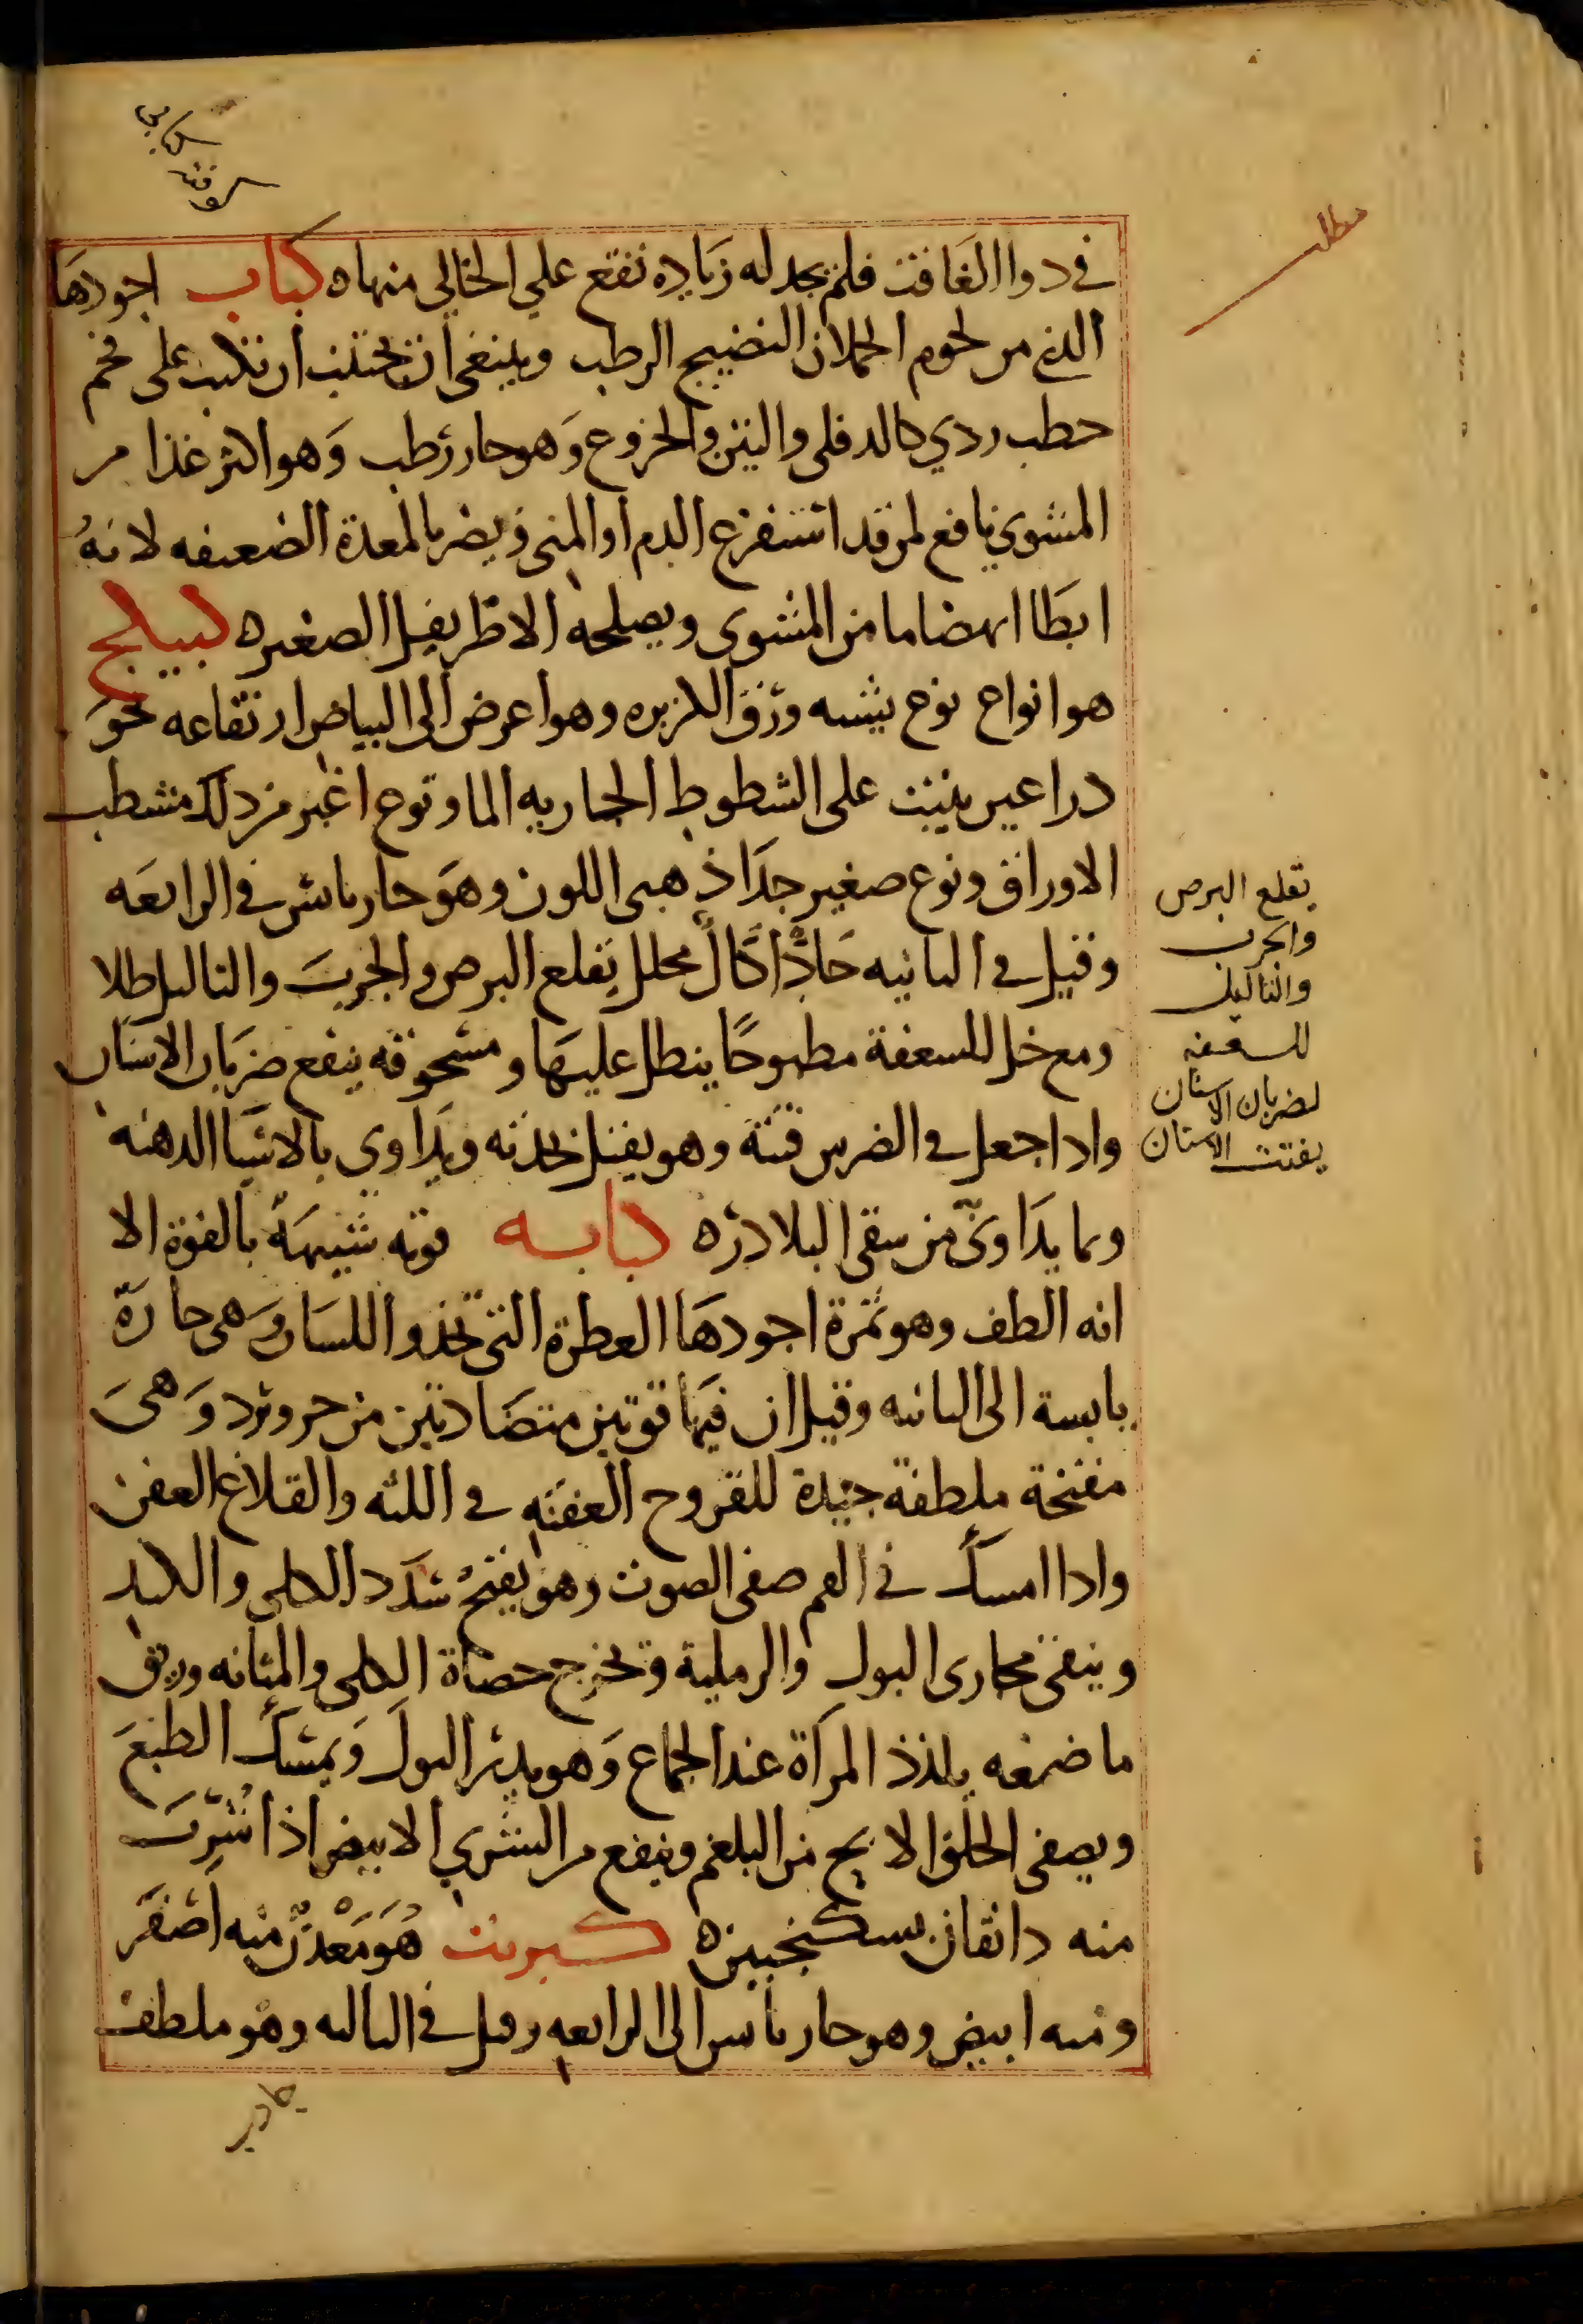 في دوا الغافت فلم نجد له زياده نفع علي الخالي منها ه كباب اجودها
الذي من لحوم الحملان النضيج الرطب وينبغي ان يجتنب ان تكبب على فحم
حطب ردي كالدفلى والتين والخروع وهو حار رطب وهو اكثر غذا من
المشوي نافع لمن قد استفرغ الدم او المنى ويضر بالمعدة الضعيفه لانهُ
ابطا انهضاما من المشوى ويصلحه الاطريفل الصغيره كبيكج
هو انواع نوع يشبه ورق الكزبره وهو اعرض الى البياض ارتفاعه نحو
دراعين ينبت على الشطوط الجاريه الما ونوع اغبر من ذلك مشطب
الاوراق ونوع صغير جدا ذهبى اللون وهو حار يابس في الرابعه
وقيل في الثانيه حادّ اكّال محلل يقلع البرص والجرب والثاليل طلا
ومع خل للسعفة مطبوخًا ينطل عليها ومسحوقه ينفع ضربان الاسنان
واذا جعل في الضرس فتته وهو يقتل بحدته ويداوي بالاشيا الدهنه
وبما يداوىّ من سقى البلادره كبابه قوته شبيهة بالفوة الا
انه الطف وهو ثمرة اجودها العطرة التى تحذوا اللسان وهى حارة
يابسة الى الثانيه وقيل ان فيها قوتين متضادتين من حر وبرد وهى
مفتحة ملطفة جيدة للقروح العفنه في اللثه والقلاع العفن
واذا امسك في الفم صفى الصوت وهو يفتح سدد الكلى والكبد
وينقى مجارى البول والرملية وتخرج حصاة الكلى والمثانه وريق
ماضغه يلذذ المرآة عند الجماع وهو يدر البول ويمسك الطبع
ويصفى الحلق الابح من البلغم وينفع من الشري الابيض اذا شرب
منه دانقان بسكنجبين ه كبريت هو معدن منه اصفر
ومنه ابيض وهو حار يابس الى الرابعه وقيل في الثالثه وهو ملطف
مطلب
يقلع البرص
والجرب
والثاليل
للسعفه
لضربان الاسنان
يفتت الاسنان